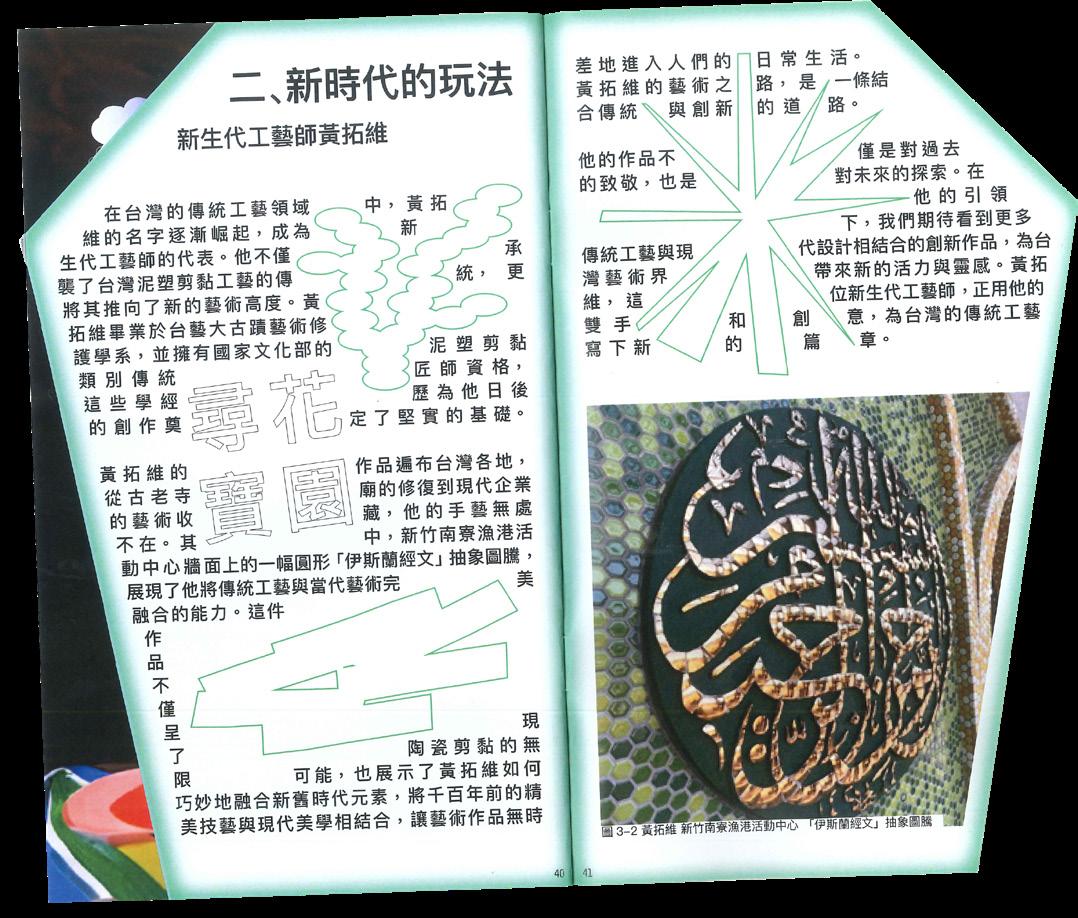 二、新時代的玩法
新生代工藝師黃拓維
在台灣的傳統工藝領域中，黃拓
維的名字逐漸崛起，成為新
生代工藝師的代表。他不僅承
襲了台灣泥塑剪黏工藝的傳統，更
將其推向了新的藝術高度。黃
拓維畢業於台藝大古蹟藝術修
護學系，並擁有國家文化部的泥塑剪黏
類別傳統匠師資格，
這些學經歷為他日後
的創作奠定了堅實的基礎。
尋花
寶園
黃拓維的作品遍布台灣各地，
從古老寺廟的修復到現代企業
的藝術收藏，他的手藝無處
不在。其中，新竹南寮漁港活
動中心牆面上的一幅圓形「伊斯蘭經文」抽象圖騰，
展現了他將傳統工藝與當代藝術完美
融合的能力。這件
作
品
不
僅
呈
了現
限陶瓷剪黏的無
可能，也展示了黃拓維如何
巧妙地融合新舊時代元素，將千百年前的精
美技藝與現代美學相結合，讓藝術作品無時
40
差地進入人們的日常生活。
黃拓維的藝術之路，是一條結
合傳統與創新的道路。
他的作品不僅是對過去
的致敬，也是對未來的探索。在
他的引領
下，我們期待看到更多
傳統工藝與現代設計相結合的創新作品，為台
灣藝術界帶來新的活力與靈感。黃拓
維，這位新生代工藝師，正用他的
雙手和創意，為台灣的傳統工藝
寫下新的篇章。
圖 3-2 黃拓維 新竹南寮漁港活動中心 「伊斯蘭經文」抽象圖騰
41